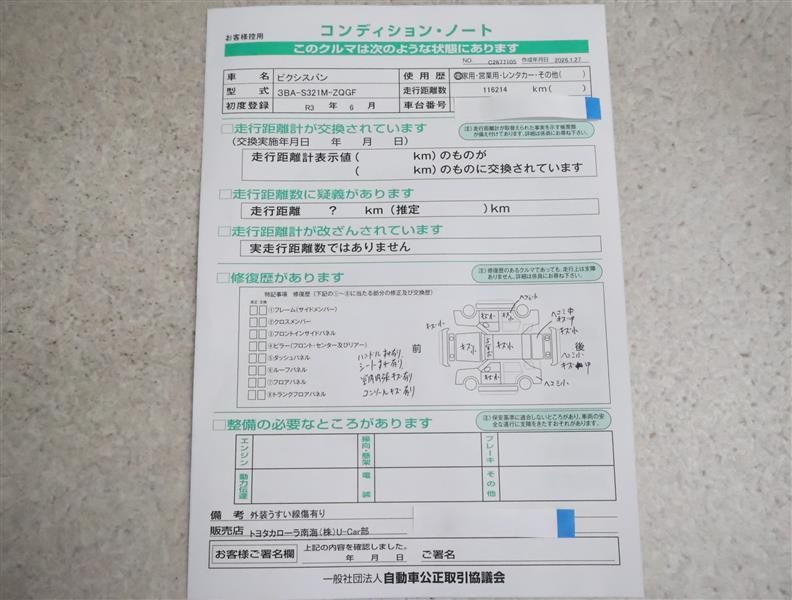 お客様控用
コンディション・ノート
このクルマは次のような状態にあります
NO. C2677105 作成年月日 2026.1.27
車名 ピクシスバン 使用歴 自家用・営業用・レンタカー・その他( )
型式 3BA-S321M-ZQGF 走行距離数 116214 km( )
初度登録 R3 年 6 月 車台番号
□走行距離計が交換されています
(交換実施年月日 年 月 日)
注)走行距離計が取替えられた事実を示す帳票類が備え付けてあります。詳細は係員にお尋ね下さい。
走行距離計表示値( km)のものが
( km)のものに交換されています
□走行距離数に疑義があります
走行距離 ? km (推定 )km
□走行距離計が改ざんされています
実走行距離数ではありません
□修復歴があります
注)修復歴のあるクルマであっても、走行上は支障ありません。詳細は係員にお尋ね下さい。
特記事項 修復歴(下記の①~⑧に当たる部分の修正及び交換歴)
修正 交換
①フレーム(サイドメンバー)
②クロスメンバー
③フロントインサイドパネル
④ピラー(フロント・センター及びリアー)
⑤ダッシュパネル
⑥ルーフパネル
⑦フロアパネル
⑧トランクフロアパネル
ハンドルすれ有り
シートすれ有り
室内内張キズ有り
コンソールキズ有り
前
後
ヘコミ小
キズ小
キズ小
キズ小
キズ小
キズ小
キズ小
ヘコミ中
キズ中
キズ小
ヘコミ小
キズ中
ヘコミ小
□整備の必要なところがあります
注)保安基準に適合しないところがあり、車両の安全な運行に支障をきたすおそれがあります。
エンジン 操向・懸架 ブレーキ
動力伝達 電装 その他
備考 外装うすい線傷有り
販売店 トヨタカローラ南海(株)U-Car部
お客様ご署名欄 上記の内容を確認しました。
年 月 日 ご署名
一般社団法人 自動車公正取引協議会